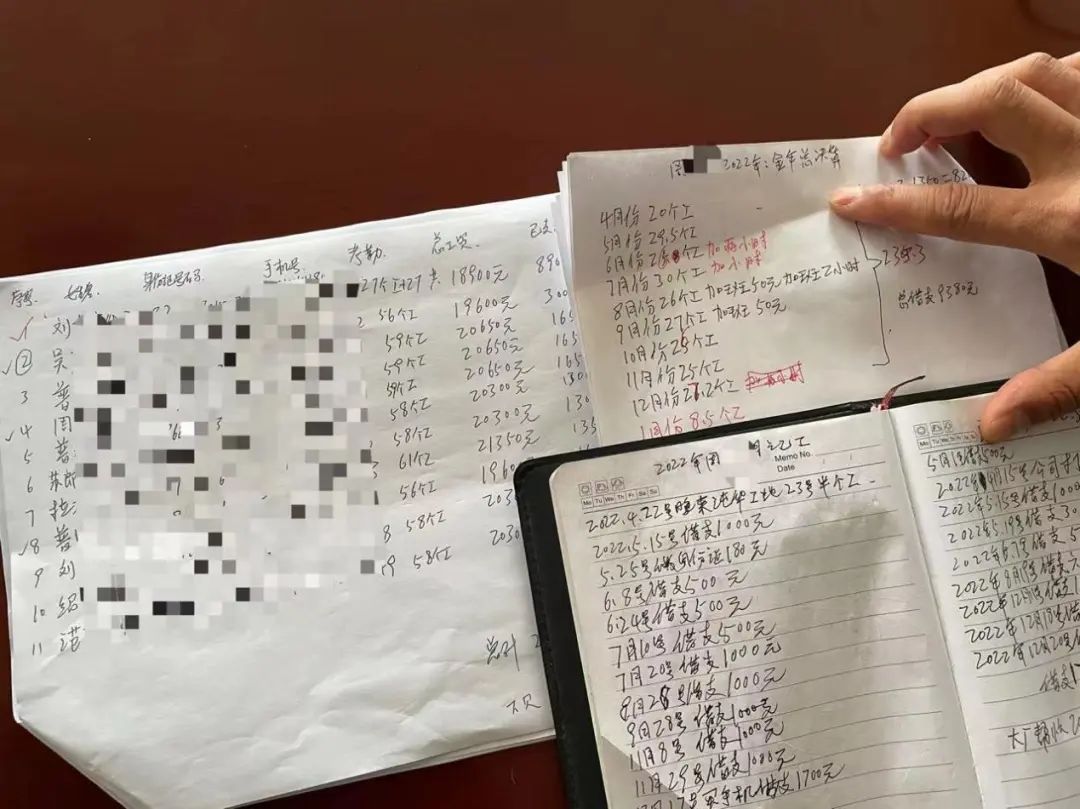 序号 姓名 身份证号码 手机号 考勤 总工资 已支
1 刘 27个工 18900元 890
2 吴 56个工 19600元 300
3 普 59个工 20650元 165
4 周 59个工 20650元 165
5 普 59个工 20650元 165
6 58个工 20300元 130
7 58个工 20300元 130
8 普 61个工 21350元 135
9 刘 56个工 1960
10 绍 58个工 2030
11 58个工 2030
总计
周 2022年:全年总决算
4月份 20个工
5月份 29.5个工
6月份 个工 加两小时
7月份 30个工 加小时
8月份 26个工 加班50元 加班2小时
9月份 27个工 加班 50元
10月份 25个工
11月份 25个工
12月份 27.2个工
1月份 8.5个工
239.3
总借支9380元
2022年周 记工
Memo No.
Date
Mo Tu We Th Fr Sa Su
2022.4.22号晚来 工地 23号半个工
2022.5.15号借支1000元
5.25号借 身份证180元
6.8号借支500元
6.24号借支500元
7月10号借支500元
7月20号借支1000元
8月28号借支1000元
9月28号借支1000元
11月8号 借支1000元
11月29号借支1000元
12月17号买手机借支1700元
Mo Tu We Th Fr Sa Su
5月 借支500元
2022年 月15号公司
2022年5.15号借支1000
2022年5.19号借支
2022年6.7号 支
2022年8月19号借支
2022年12月 号借
2022年12月17号借
2022年12月20号借
借支